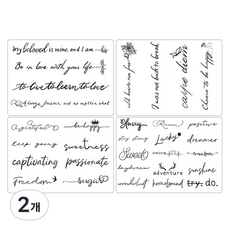 My beloved is mine, and I am
Be in love with your life
to live to learn to love
Always, forever and no matter what
I was not built to break
carpe diem
Choose to be happy
grateful
be happy
keep going
sweetness
captivating
passionate
Freedom
positive
Lucky
dreamer
Sweet
daydream
adventure
sunshine
wonderful
try. do.
2개